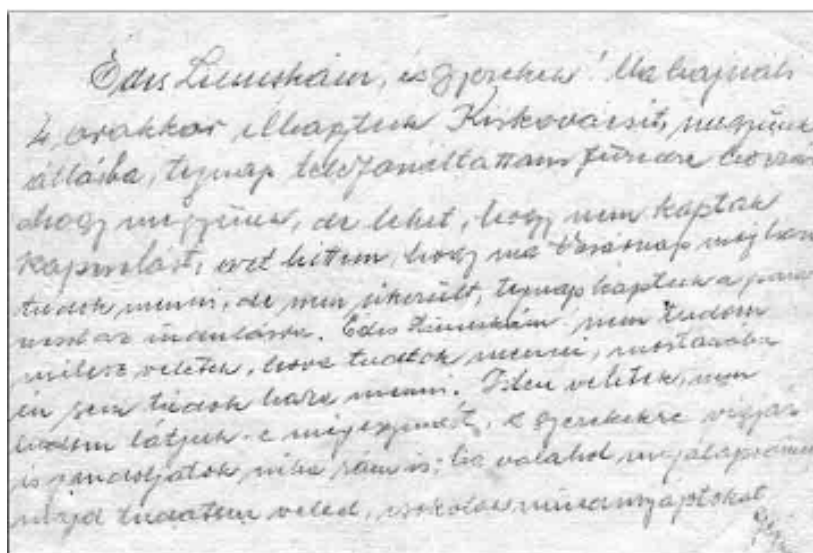 Édes Limuskám, és gyerekek! Ma hajnali
4 orakkor, elhagytuk Kiskovácsit, megyünk
állásba, tegnap telefonáltattam Füredre hozzá
ahogy megyünk, de lehet, hogy nem kaptak
kapcsolást, azt hittem, hogy ma Vasárnap még haza
tudok menni, de nem sikerült, tegnap kaptuk a paran
csot az indulásra. Édes nem tudom
mi lesz veletek, hova tudtok menni, mostanába
én sem tudok haza menni. Isten veletek, nem
tudom látjuk-e még egymást, a gyerekekre vigyáz
is gondoljatok néha rám is, ha valahol megálapodunk
majd tudatom veled, csokolok mindnyájatokat